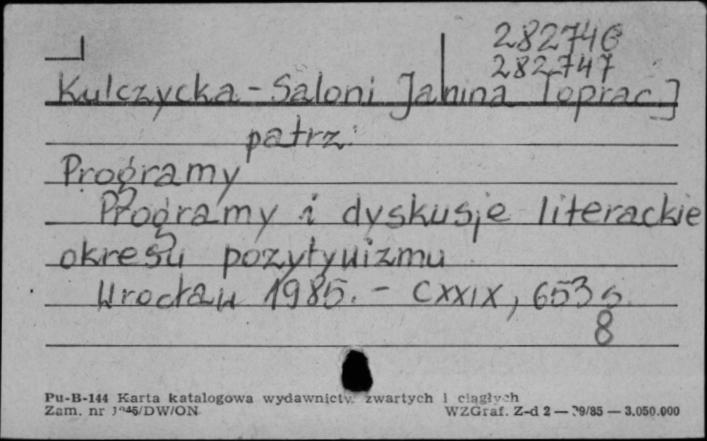 282746
282747
Kulczycka-Saloni Janina [oprac.]
patrz:
Programy
Programy i dyskusje literackie
okresu pozytywizmu
Wrocław 1985. - CXXIX, 653 s.
8
Pu-B-144 Karta katalogowa wydawnictw zwartych i ciągłych
Zam. nr /DW/ON WZGraf. Z-d 2 — 29/85 — 3.050.000